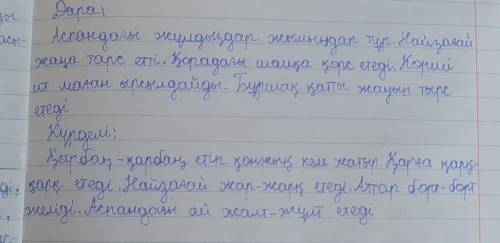 Дара;
Аспандағы жұлдыздар жымыңдап тұр. Найзағай
жаңа тарс етті. Қорадағы шошқа қорс етеді. Көрші
ит маған ырсылдайды. Бұршақ қатты жауып тырс
етеді
Күрделі;
Қырбаң-қарбаң етіп қонжық келе жатыр. Қарға қарқ-
қарқ етеді. Найзағай жар-жарқ етеді. Аттар борт-борт
желіді. Аспандағы ай жалт-жұлт етеді